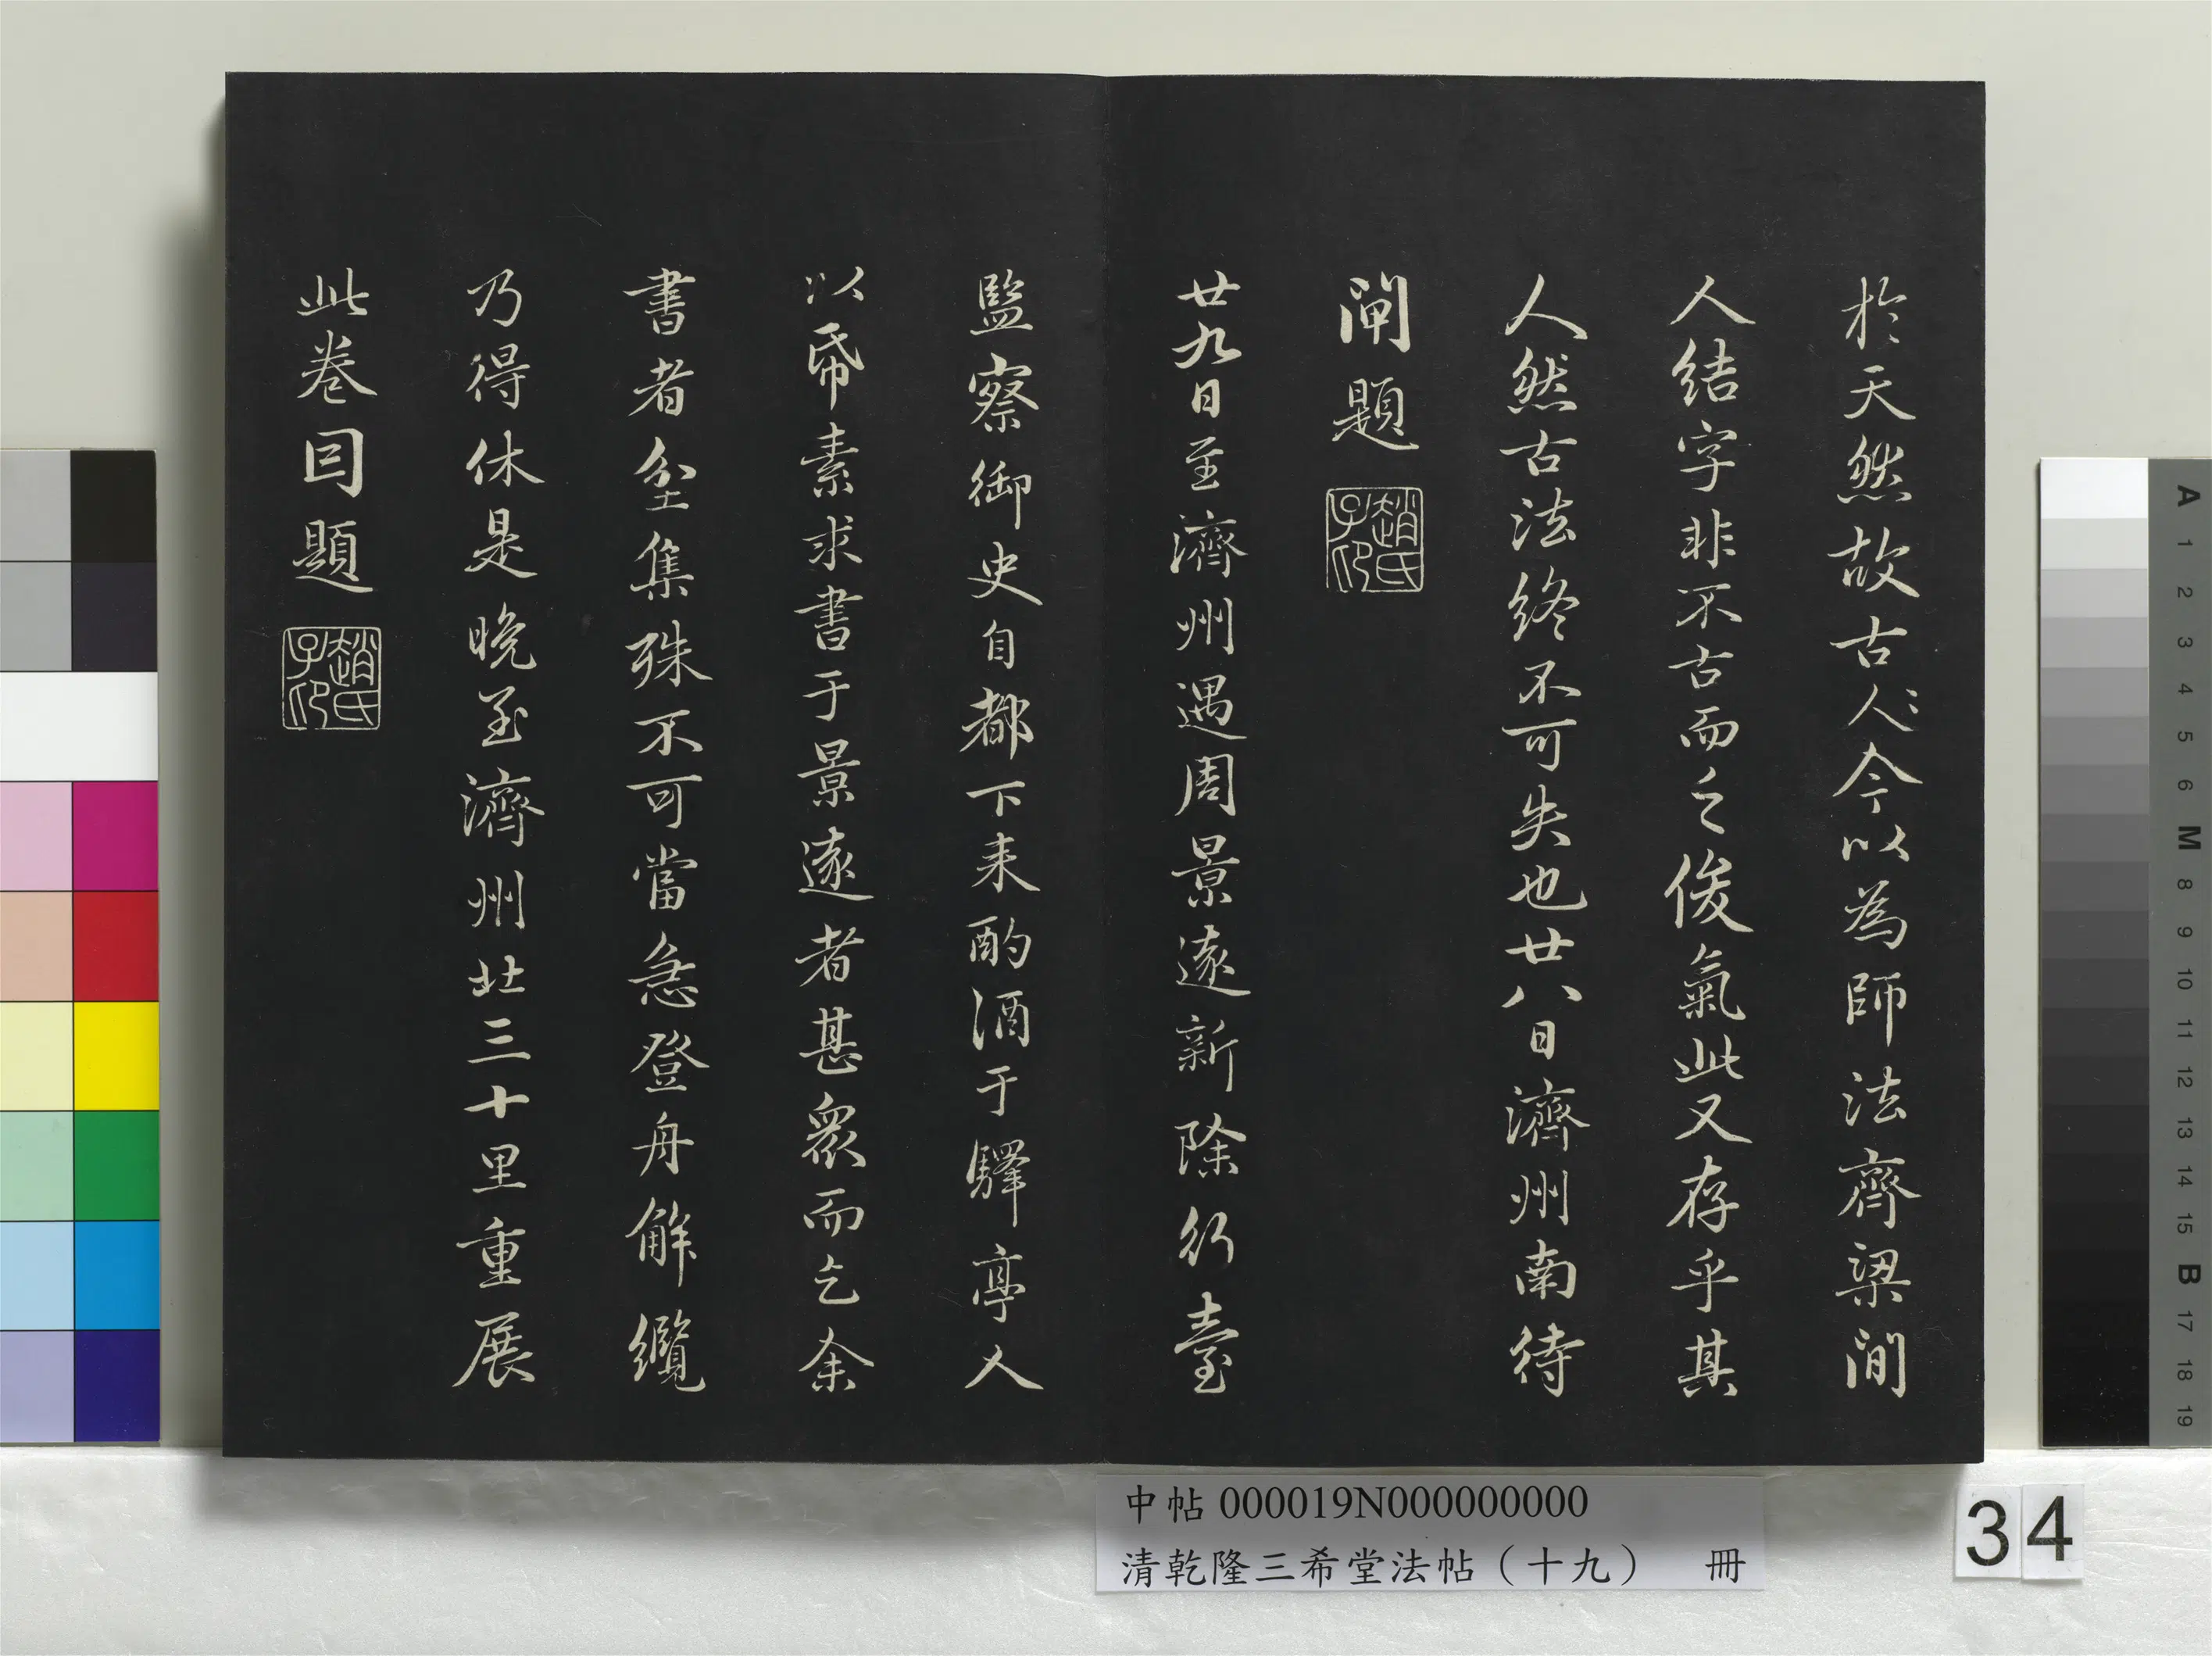 於天然故古人〻今以為師法齊梁間
人結字非不古而乏俊氣此又存乎其
人然古法終不可失也廿八日濟州南待
閘題
趙氏子印
廿九日至濟州遇周景遠新除行臺
監察御史自都下来酌酒于驛亭人
以帋素求書于景遠者甚衆而乞余
書者坌集殊不可當急登舟解纜
乃得休是晚至濟州北三十里重展
此卷因題
趙氏子印
中帖 000019N000000000
清乾隆三希堂法帖（十九） 冊
34
A 1 2 3 4 5 6 M 8 9 10 11 12 13 14 15 B 17 18 19